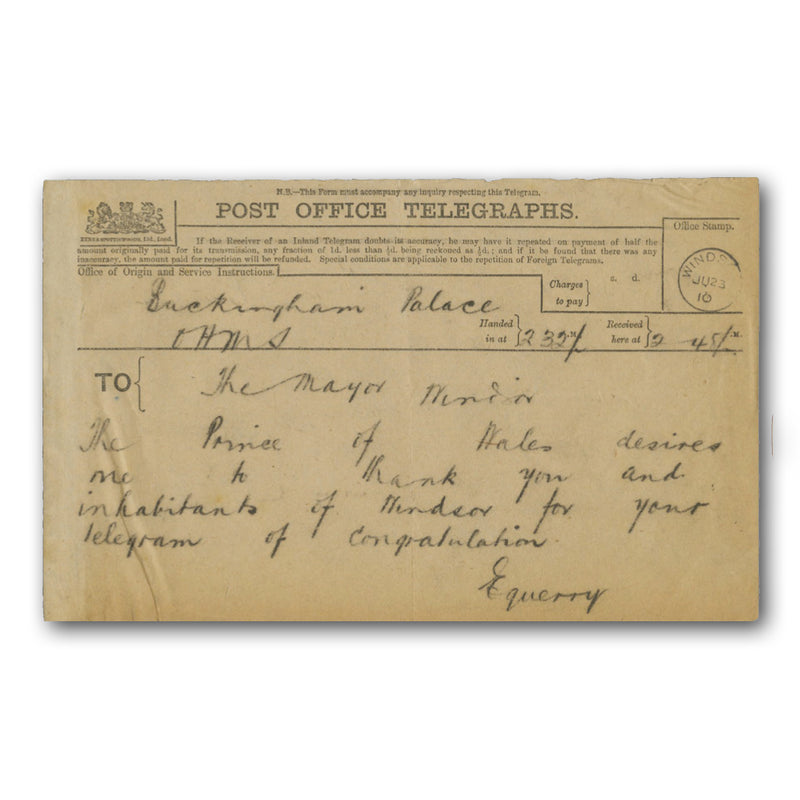 N.B.—This Form must accompany any inquiry respecting this Telegram.
POST OFFICE TELEGRAPHS.
If the Receiver of an Inland Telegram doubts its accuracy, he may have it repeated on payment of half the
amount originally paid for its transmission, any fraction of 1d. less than ½d. being reckoned as ½d.; and if it be found that there was any
inaccuracy, the amount paid for repetition will be refunded. Special conditions are applicable to the repetition of Foreign Telegrams.
Office Stamp.
WINDS
JU 23
10
Office of Origin and Service Instructions.
Charges
to pay
s. d.
Buckingham Palace
OHMS
Handed
in at
2 32
M.
Received
here at
2 45
M.
TO
The Mayor Windsor
The Prince of Wales desires
me to thank you and
inhabitants of Windsor for your
telegram of congratulation.
Equerry